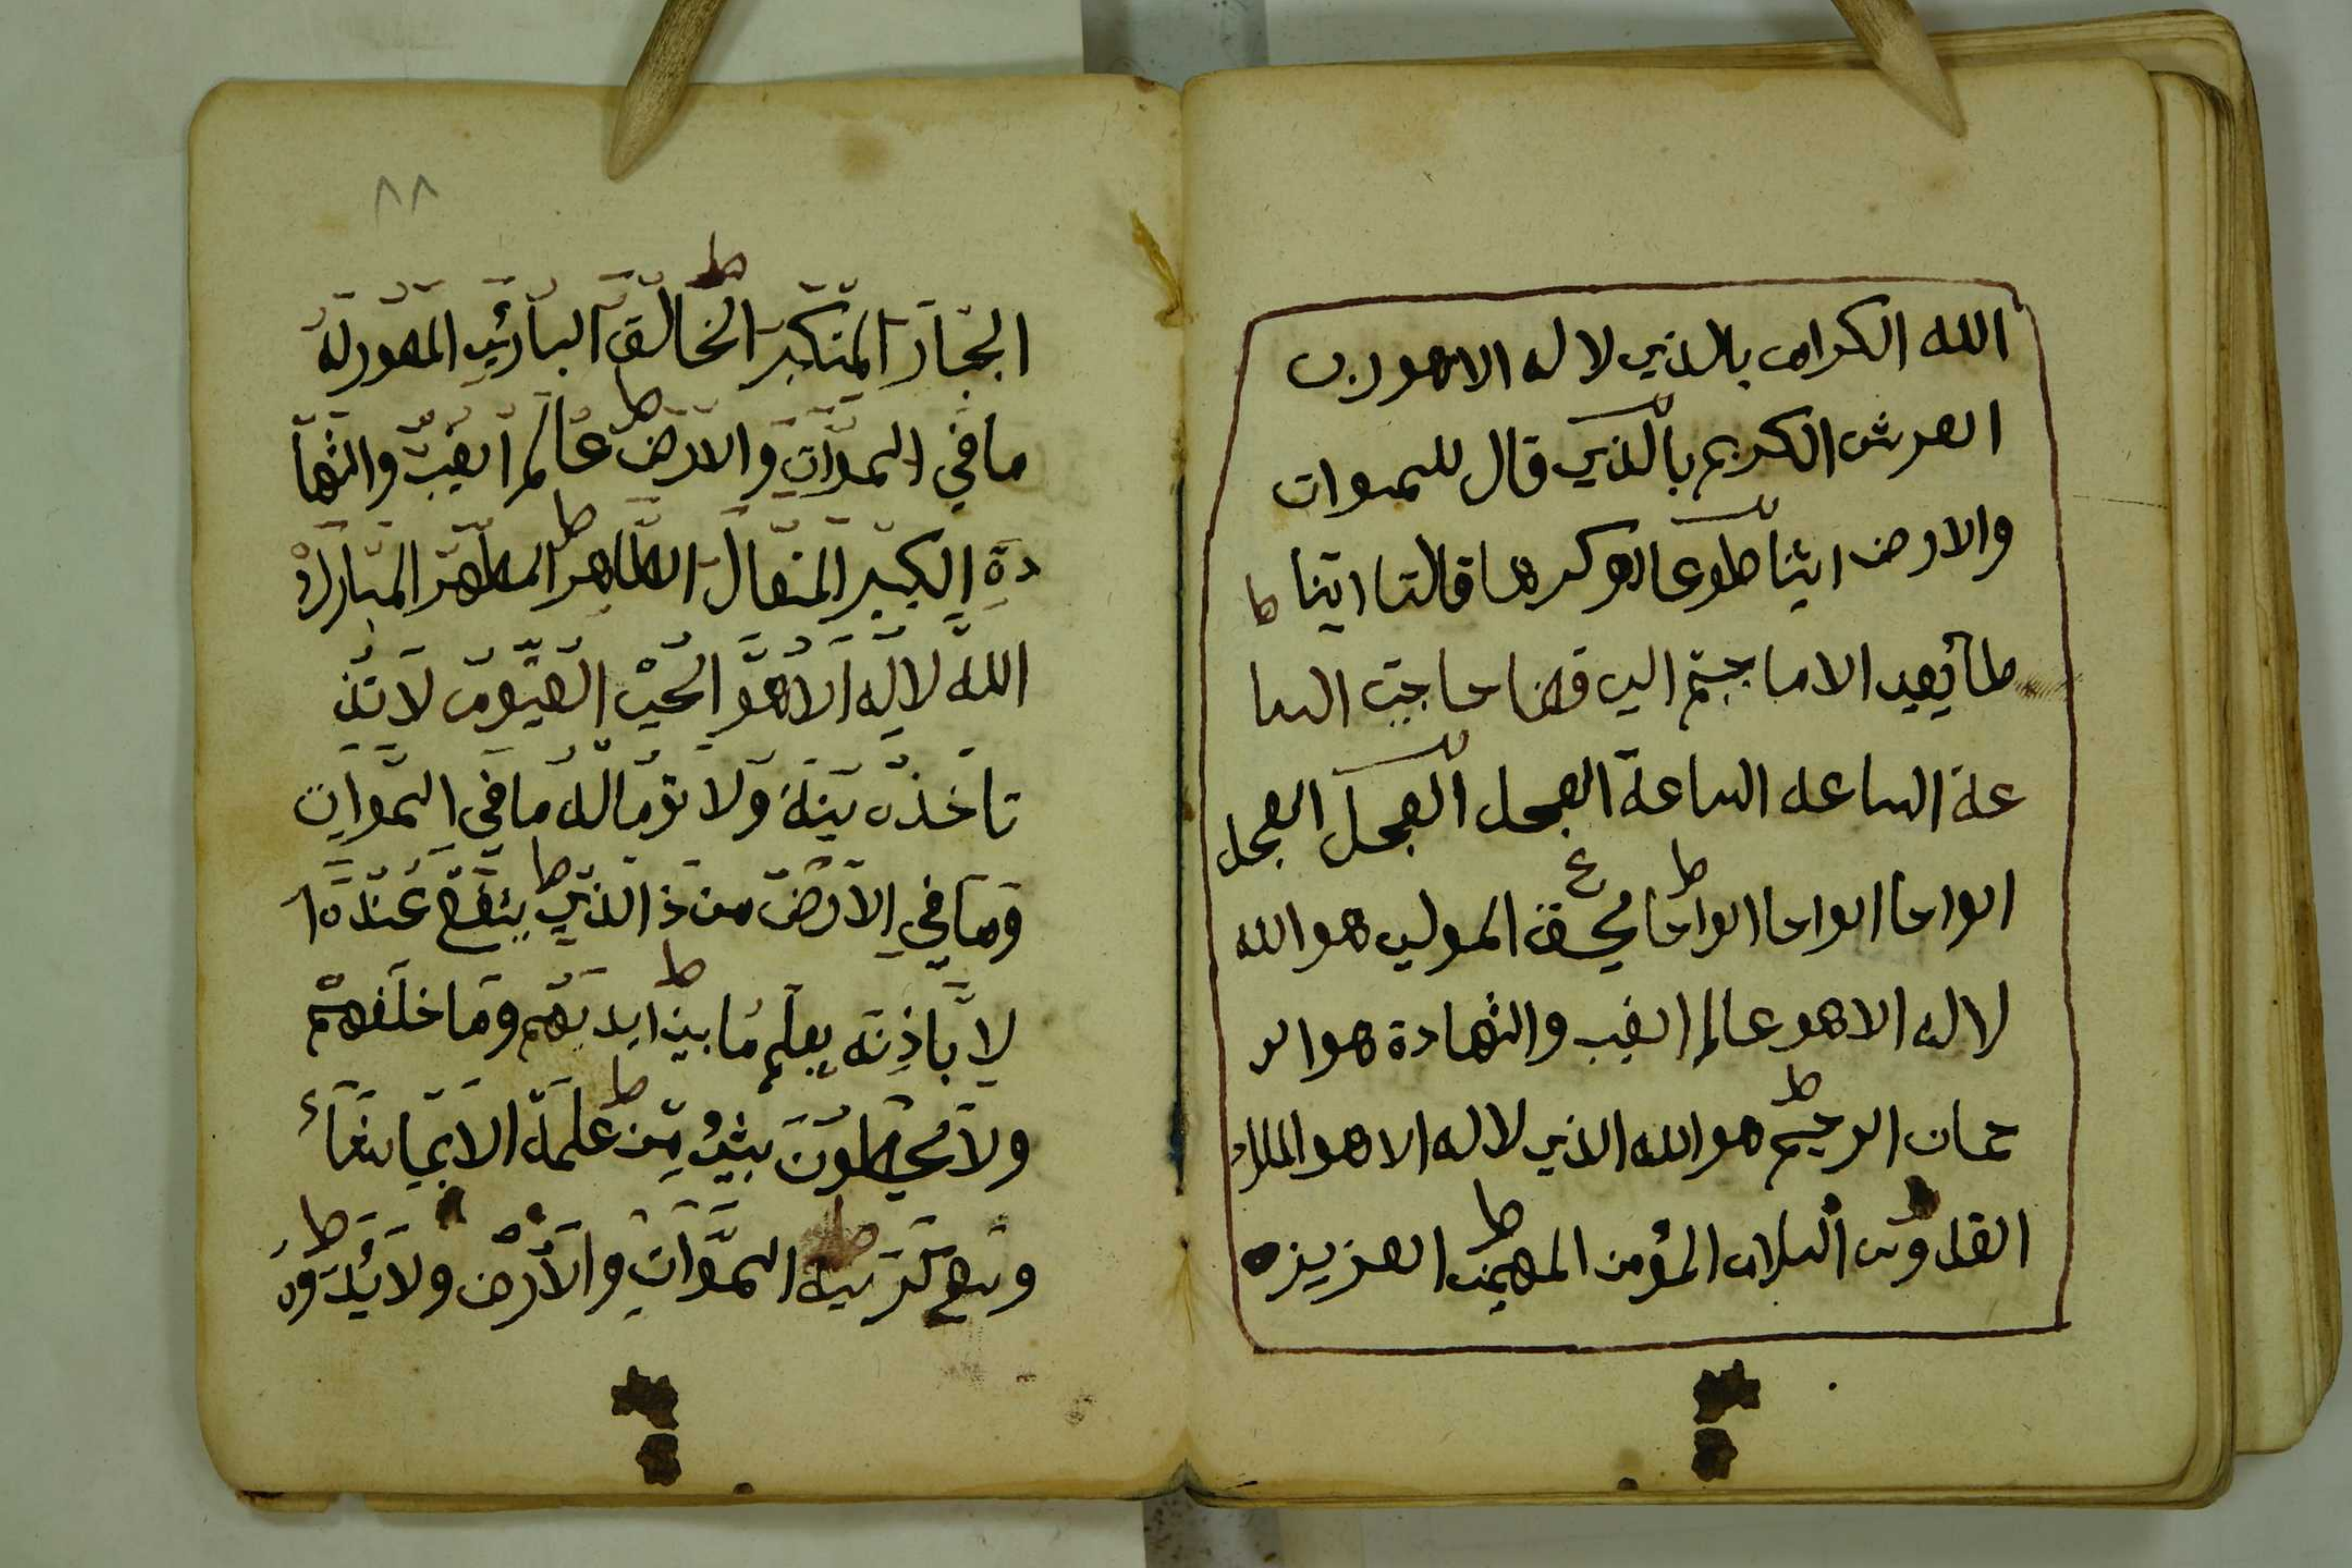 الله الكرام بالذي لا له الا هو رب
العرش الكريم بالذي قال للسموات
والارض ايئنا طوعا او كرها قالتا اتينا
طايعين الا ما جيتم الي حاجتي السا
عة الساعه الساعة العجل العجل العجل
الواحا الواحا الواحا بحق المولي هو الله
لا له الا هو عالم الغيب والشهادة هو الر
حمان الرحيم هو الله الذي لا له الا هو الملك
القدوس السلام المؤمن المهيمن العزيز
٨٨
الجبار المتكبر الخالق البارئ المصور له
ما في السموات والارض عالم الغيب والشها
دة الكبير المتعال الطاهر المطهر المبارك
الله لا له الا هو الحي القيوم لا
تاخذه سنة ولا نوما له ما في السموات
وما في الارض من ذا الذي يشفع عنده ا
لا باذنه يعلم ما بين ايديهم وما خلفهم
ولا يحيطون بشئ من علمه الا بما شاء
وسع كرسيه السموات والارض ولا يئده